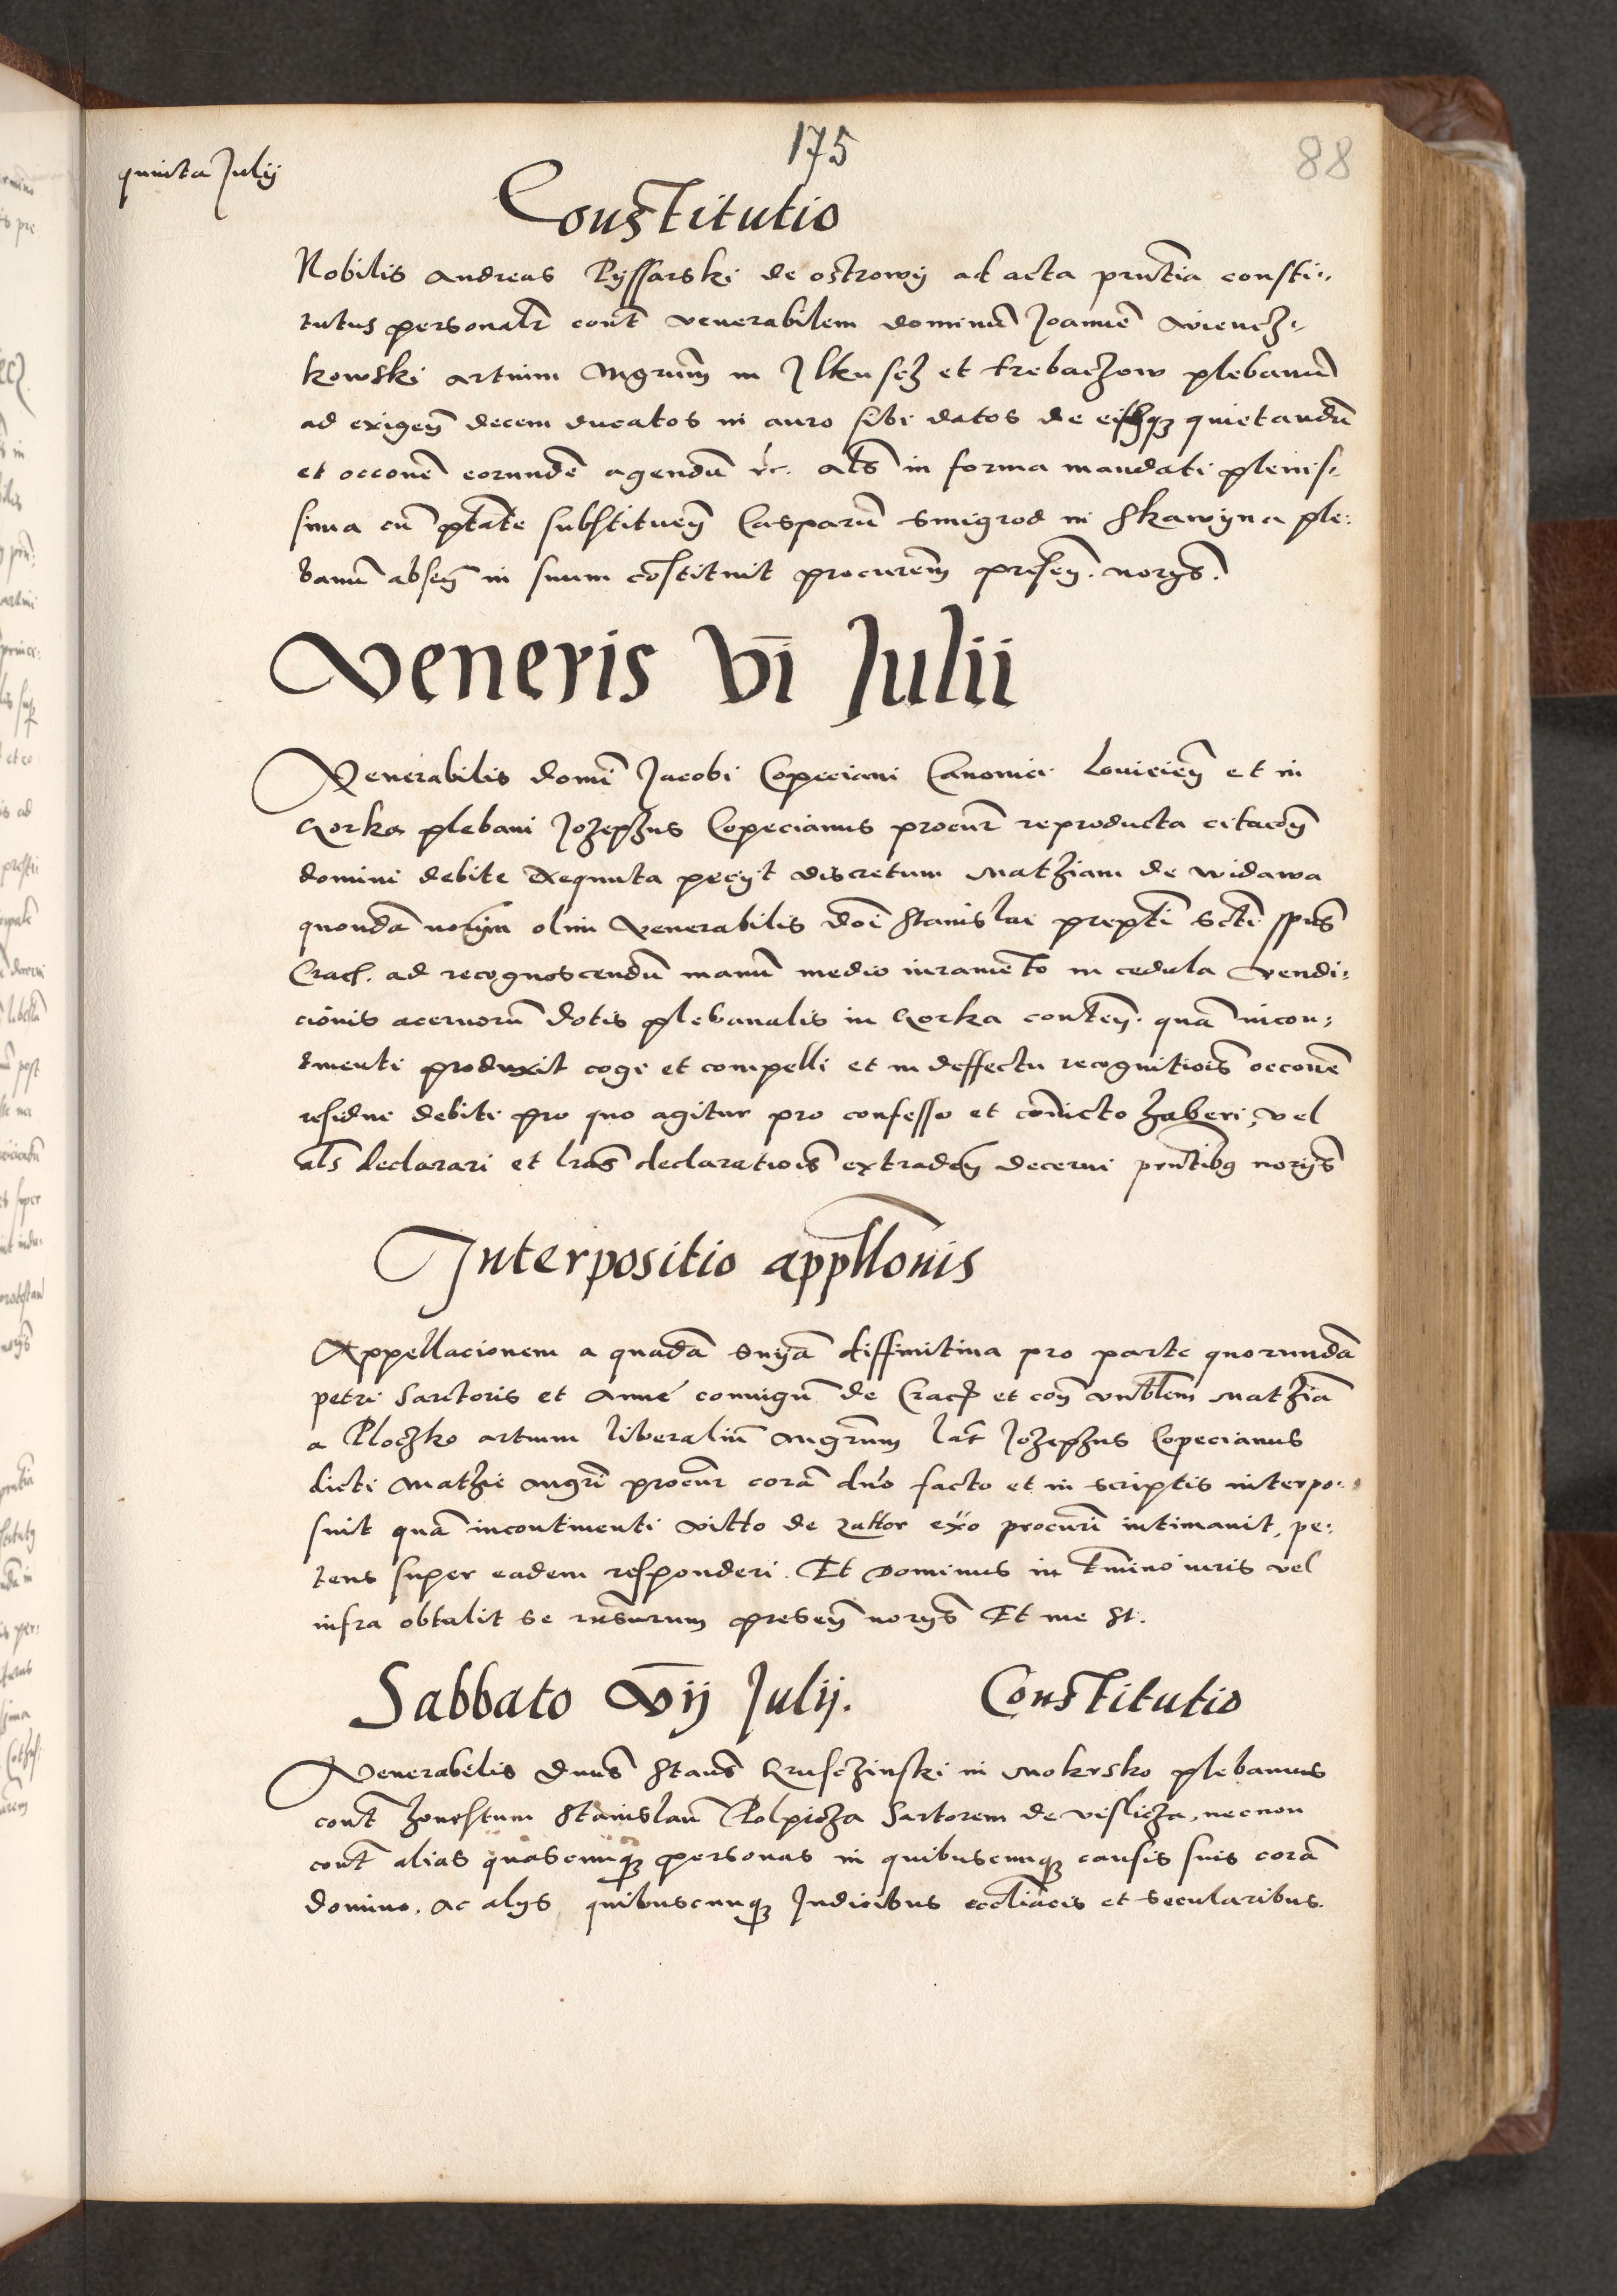 175
88
quinta Julij
Constitutio
Nobilis Andreas Ryssarski de ostrowij ad acta pnтia consti:
tutus personalr cont venerabilem dominū Joannē Wiencz:
kowski artium Mgrum in Ilkusch et trebaczow plebanū
ad exigen decem ducatos in auro sibi datos de eisqz quietandū
et occonē eorundē agendū etc. als in forma mandati plenis:
sima cū ptate substituen Casparū Smigrod in Skawyna ple:
banū absen in suum cōstituit procurem presen. norijs.
Veneris vi Julii
Venerabilis domi Jacobi Copeciani Canonici Lovicien et in
Gorka plebani Jozephus Copecianus procur reproducta citacōn
domini debite exequuta pecijt discretum Mathiam de Widawa
quondā norium olim venerabilis doī Stanislai prepti Scti spus
Crac. ad recognoscendū manū medio iuramento in cedula vendi:
cionis acervorū dotis plebanalis in Gorka conten. quā incon:
tinenti produxit cogi et compelli et in deffectu recognitiois occonē
residui debiti pro quo agitur pro confesso et convicto haberi, vel
als declarari et lras declaratiois extraden decerni pntibq norijs
Interpositio appllonis
Appellacionem a quadā Snia diffinitiva pro parte quorundā
petri Sartoris et Anne coniugū de Crac et con vnblem Mathiā
a Ploczko artium liberaliū Mgrum lat Jozephus Copecianus
dicti Mathie Mgri procur corā dno facto et in scriptis interpo:
suit quā incontinenti Vitto de Zattor exo procuri intimavit, pe:
tens super eadem responderi. Et Dominus in tmino iuris vel
infra obtulit se rnsurum presen norijs Et me St.
Sabbato vij Julij. Constitutio
Venerabilis Dnus Staus Grusczinski in Mokrsko plebanus
cont honestum Stanislaū Polpicza Sartorem de vislicza, necnon
cont alias quascunqz personas in quibuscunqz causis suis corā
domino, ac alijs quibuscunqz Judicibus eccliacis et secularibus.